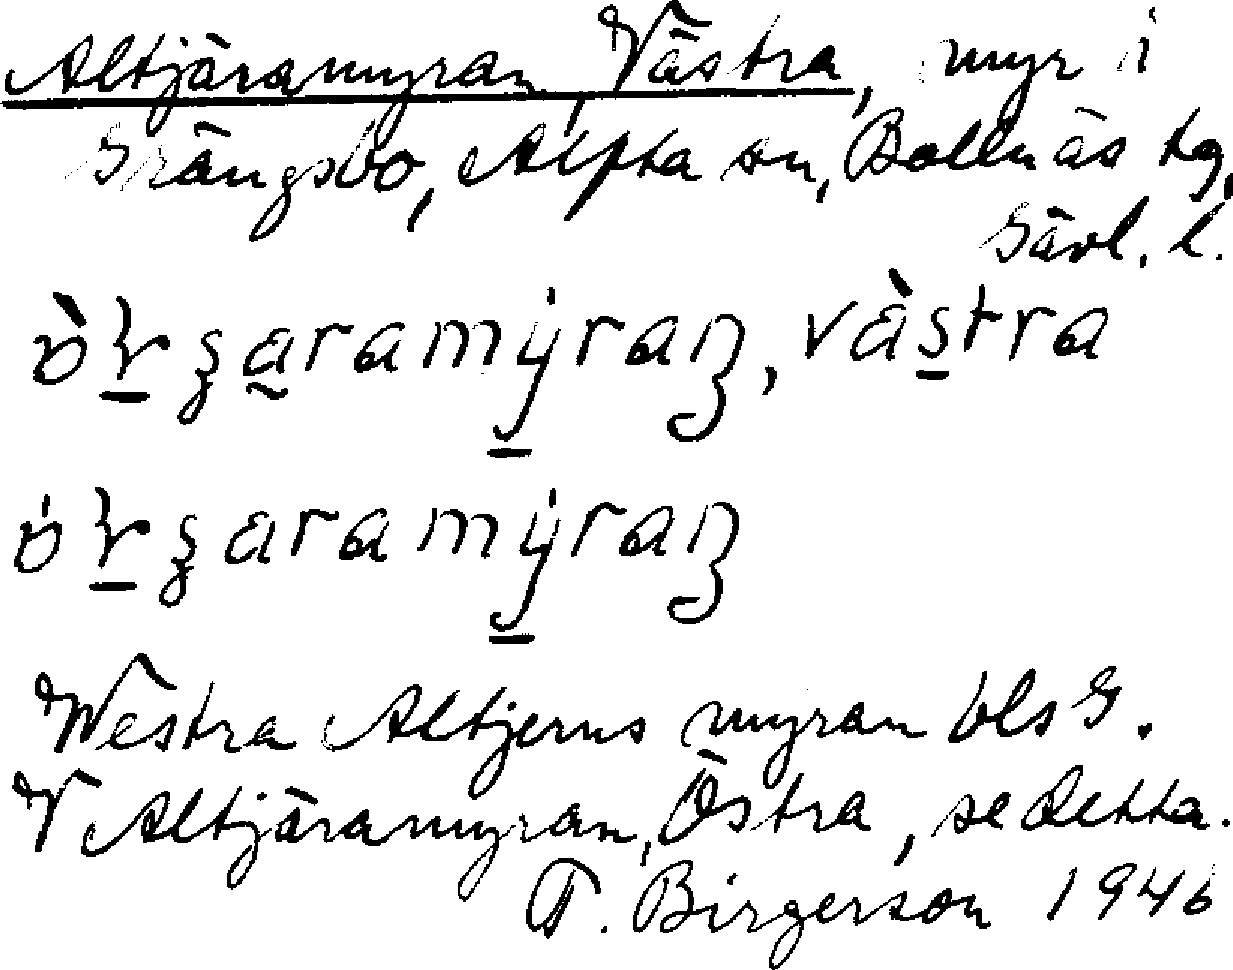 Altjäramyran, Västra, myr i
Grängsbo, Alfta sn, Bollnäs tg,
Gävl. l.
västra
Westra Altjerns myran bls G.
V Altjäramyran, Östra, se detta.
T. Birgerson 1946